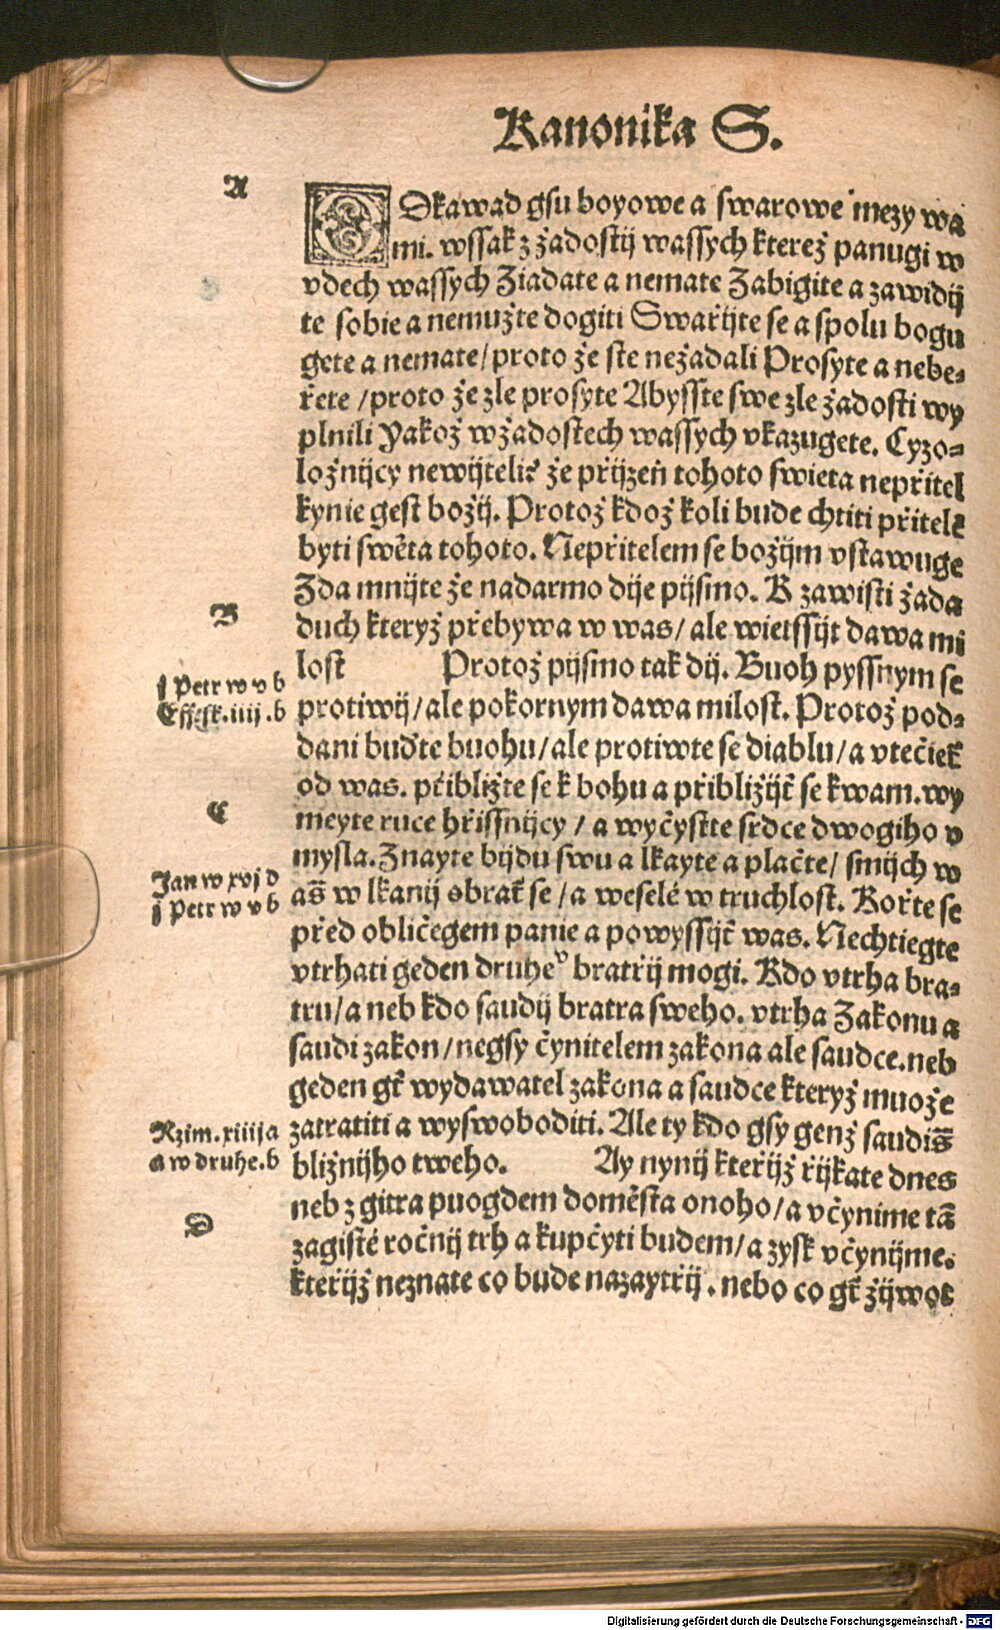 Kanonika S.
A
ODkawad gsu boyowe a swarowe mezy wa
mi. wssak z žadostij wassych kterež panugi w
vdech wassych Žiadate a nemate Zabigite a zawidij
te sobie a nemužte dogiti Swařijte se a spolu bogu
gete a nemate/ proto že ste nežadali Prosyte a nebe-
řete / proto že zle prosyte Abysste swe zle žadosti wy
plnili Yakož w žadostech wassych vkazugete. Cyzo-
ložnijcy newijteliž že přijzeň tohoto swieta nepřitel
kynie gest božij. Protož kdož koli bude chtiti přitelē
byti swěta tohoto. Nepřitelem se božijm vstawuge
Zda mnijte že nadarmo dije pijsmo. K zawisti žada
B
duch kteryž přebywa w was/ ale wietssijt dawa mi
lost Protož pijsmo tak dij. Buoh pyssnym se
j Petr w v b
protiwij/ ale pokornym dawa milost. Protož pod-
Effesk.iiij.b
dani buďte buohu/ ale protiwte se diablu/ a vtečiet̄
od was. přibližte se k bohu a přibližijt̄ se k wam. wy
C
meyte ruce hřissnijcy / a wyčystte srdce dwogiho v
mysla. Znayte bijdu swu a lkayte a plačte/ smijch w
Jan w xvj d
as̄ w lkanij obrat̄ se / a weselé w truchlost. Kořte se
j Petr w v b
před obličegem panie a powyssijt̄ was. Nechtiegte
vtrhati geden druheᵛ bratřij mogi. Kdo vtrha bra-
tru/ a neb kdo saudij bratra sweho. vtrha Zakonu a
saudi zakon/ negsy čynitelem zakona ale saudce. neb
geden gt̄ wydawatel zakona a saudce kteryž muože
Rzim.xiiij a
zatratiti a wyswoboditi. Ale ty kdo gsy genž saudis̄
a w druhe.b
bližnijho tweho. Ay nynij kteřijž řijkate dnes
neb z gitra puogdem doměsta onoho/ a včynime tā
D
zagisté ročnij trh a kupčyti budem/ a zysk včynijme.
kteřijž neznate co bude nazaytřij. nebo co gt̄ žijwot
Digitalisierung gefördert durch die Deutsche Forschungsgemeinschaft - DFG